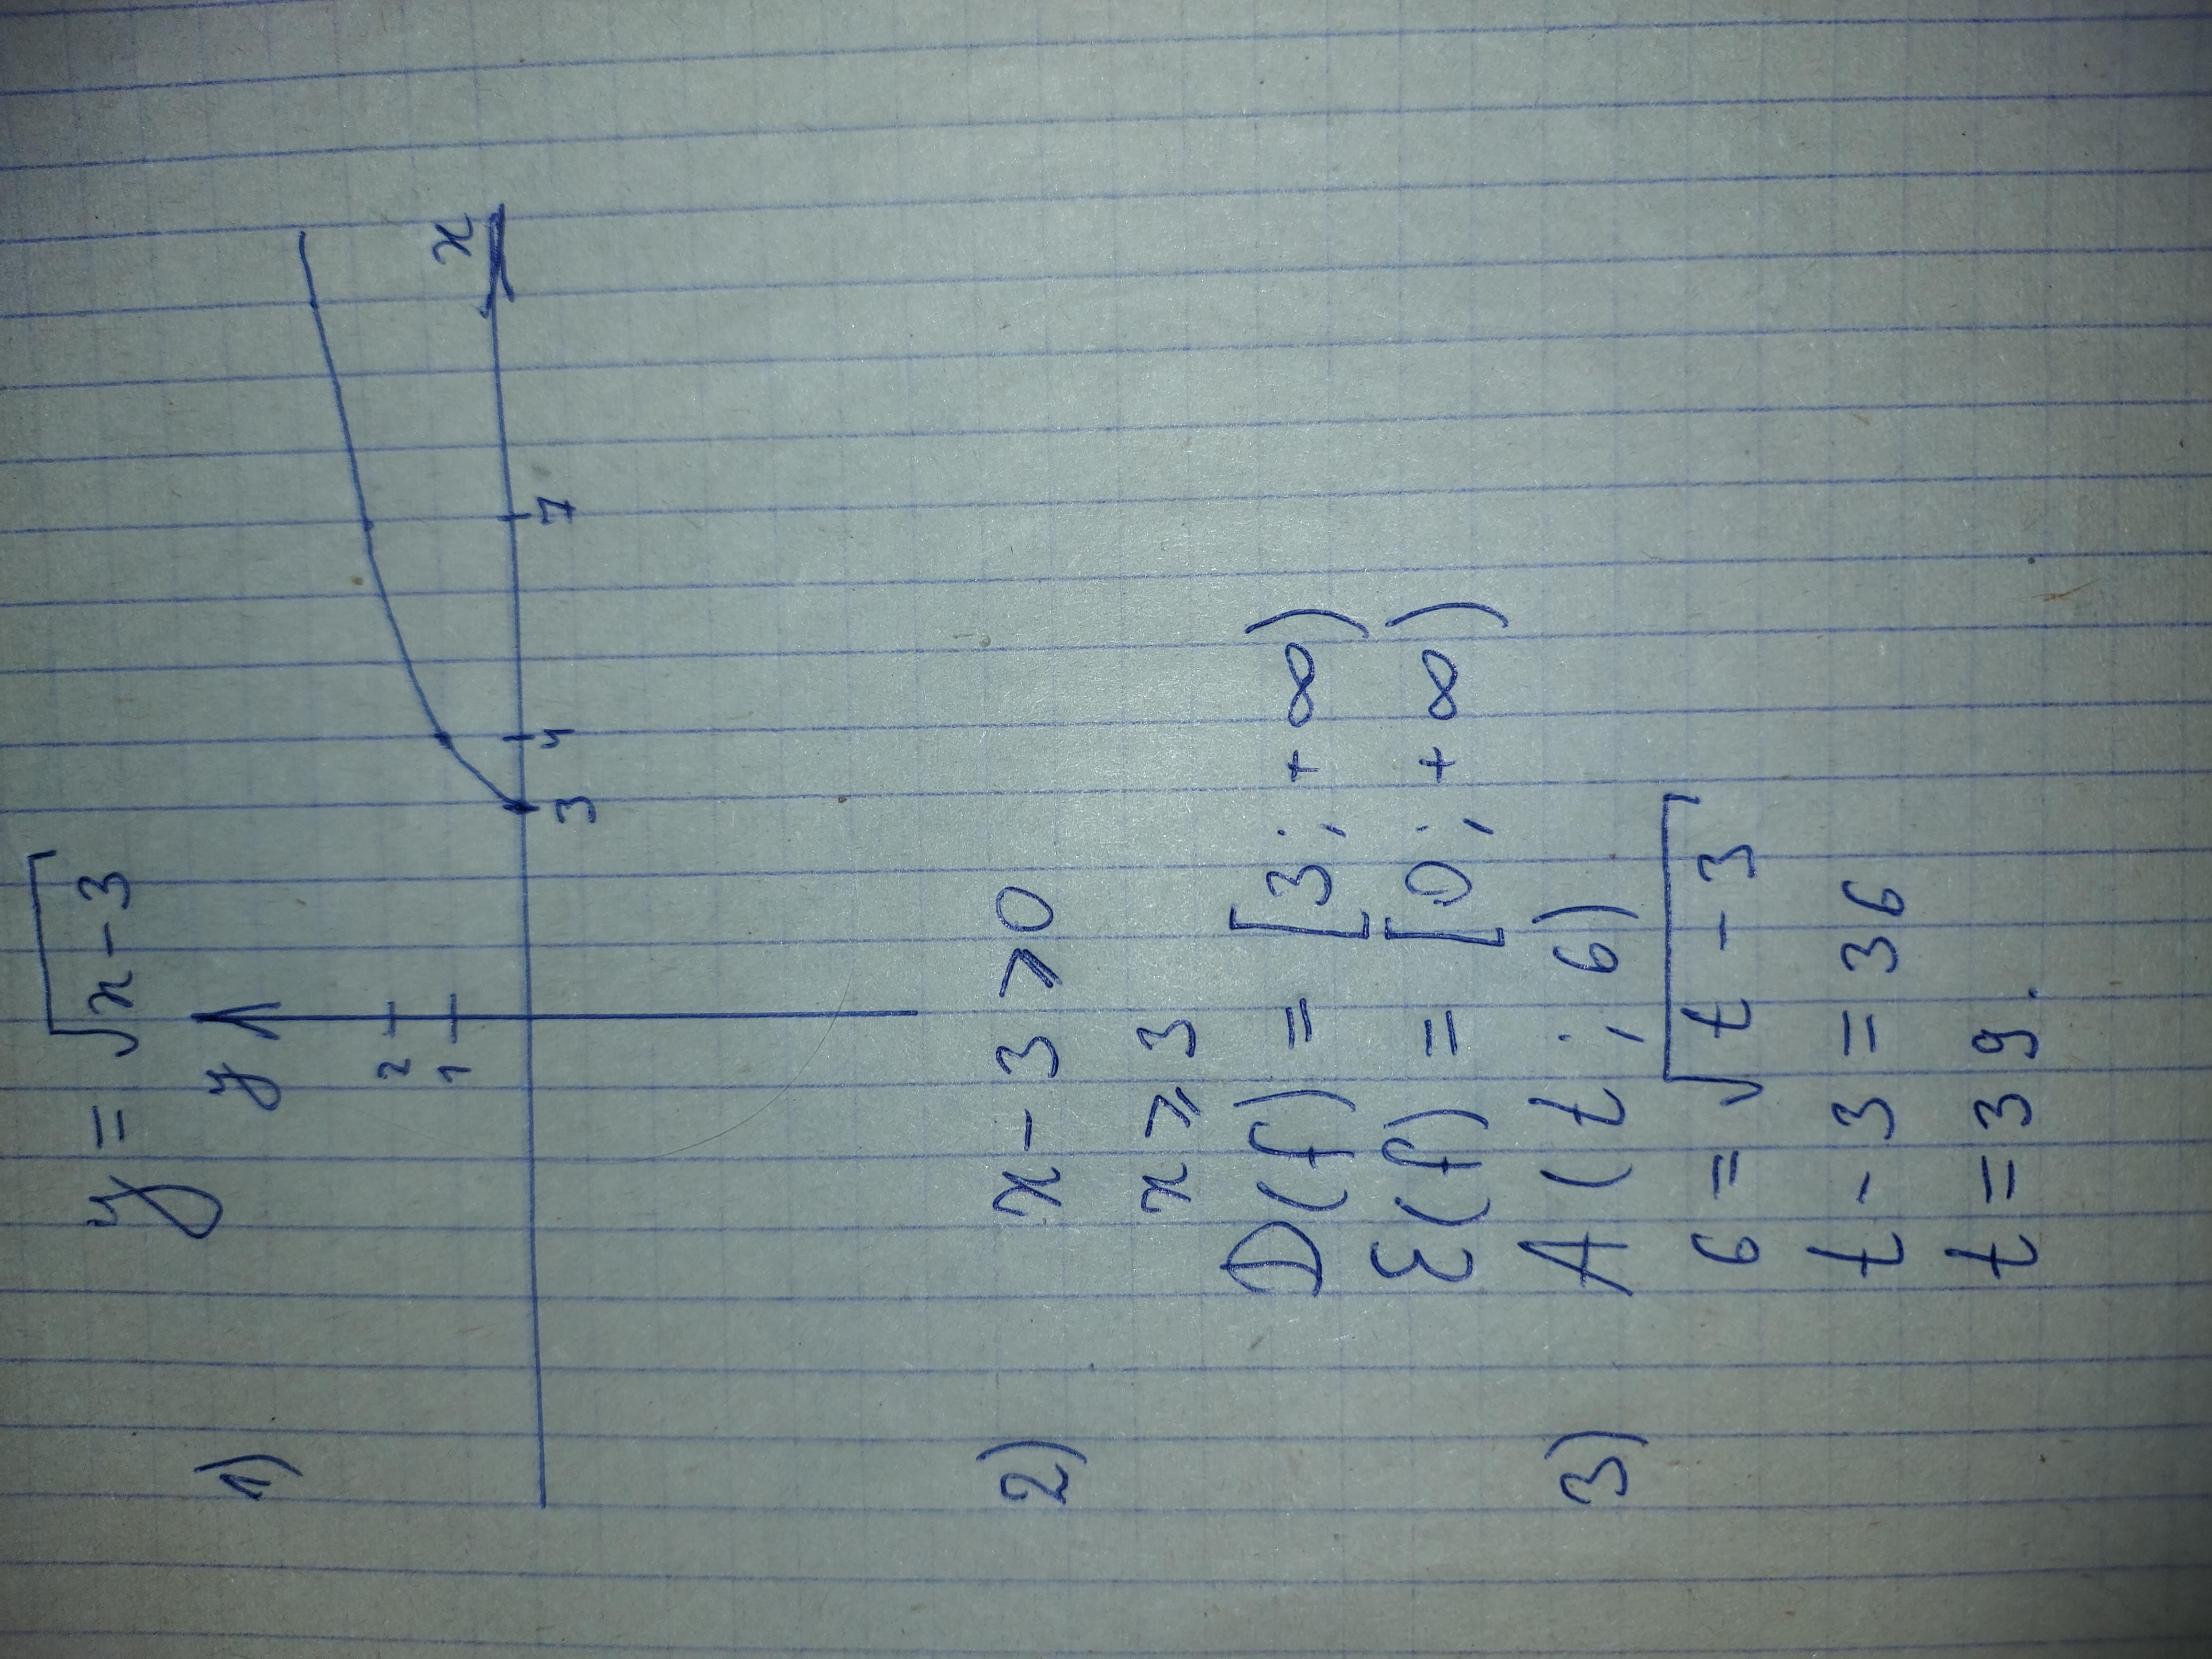 y = √x-3
1)
y
2
1
x
3 4 7
2) x - 3 ⩾ 0
x ⩾ 3
D(f) = [3; +∞)
E(f) = [0; +∞)
3) A (t; 6)
6 = √t - 3
t - 3 = 36
t = 39.